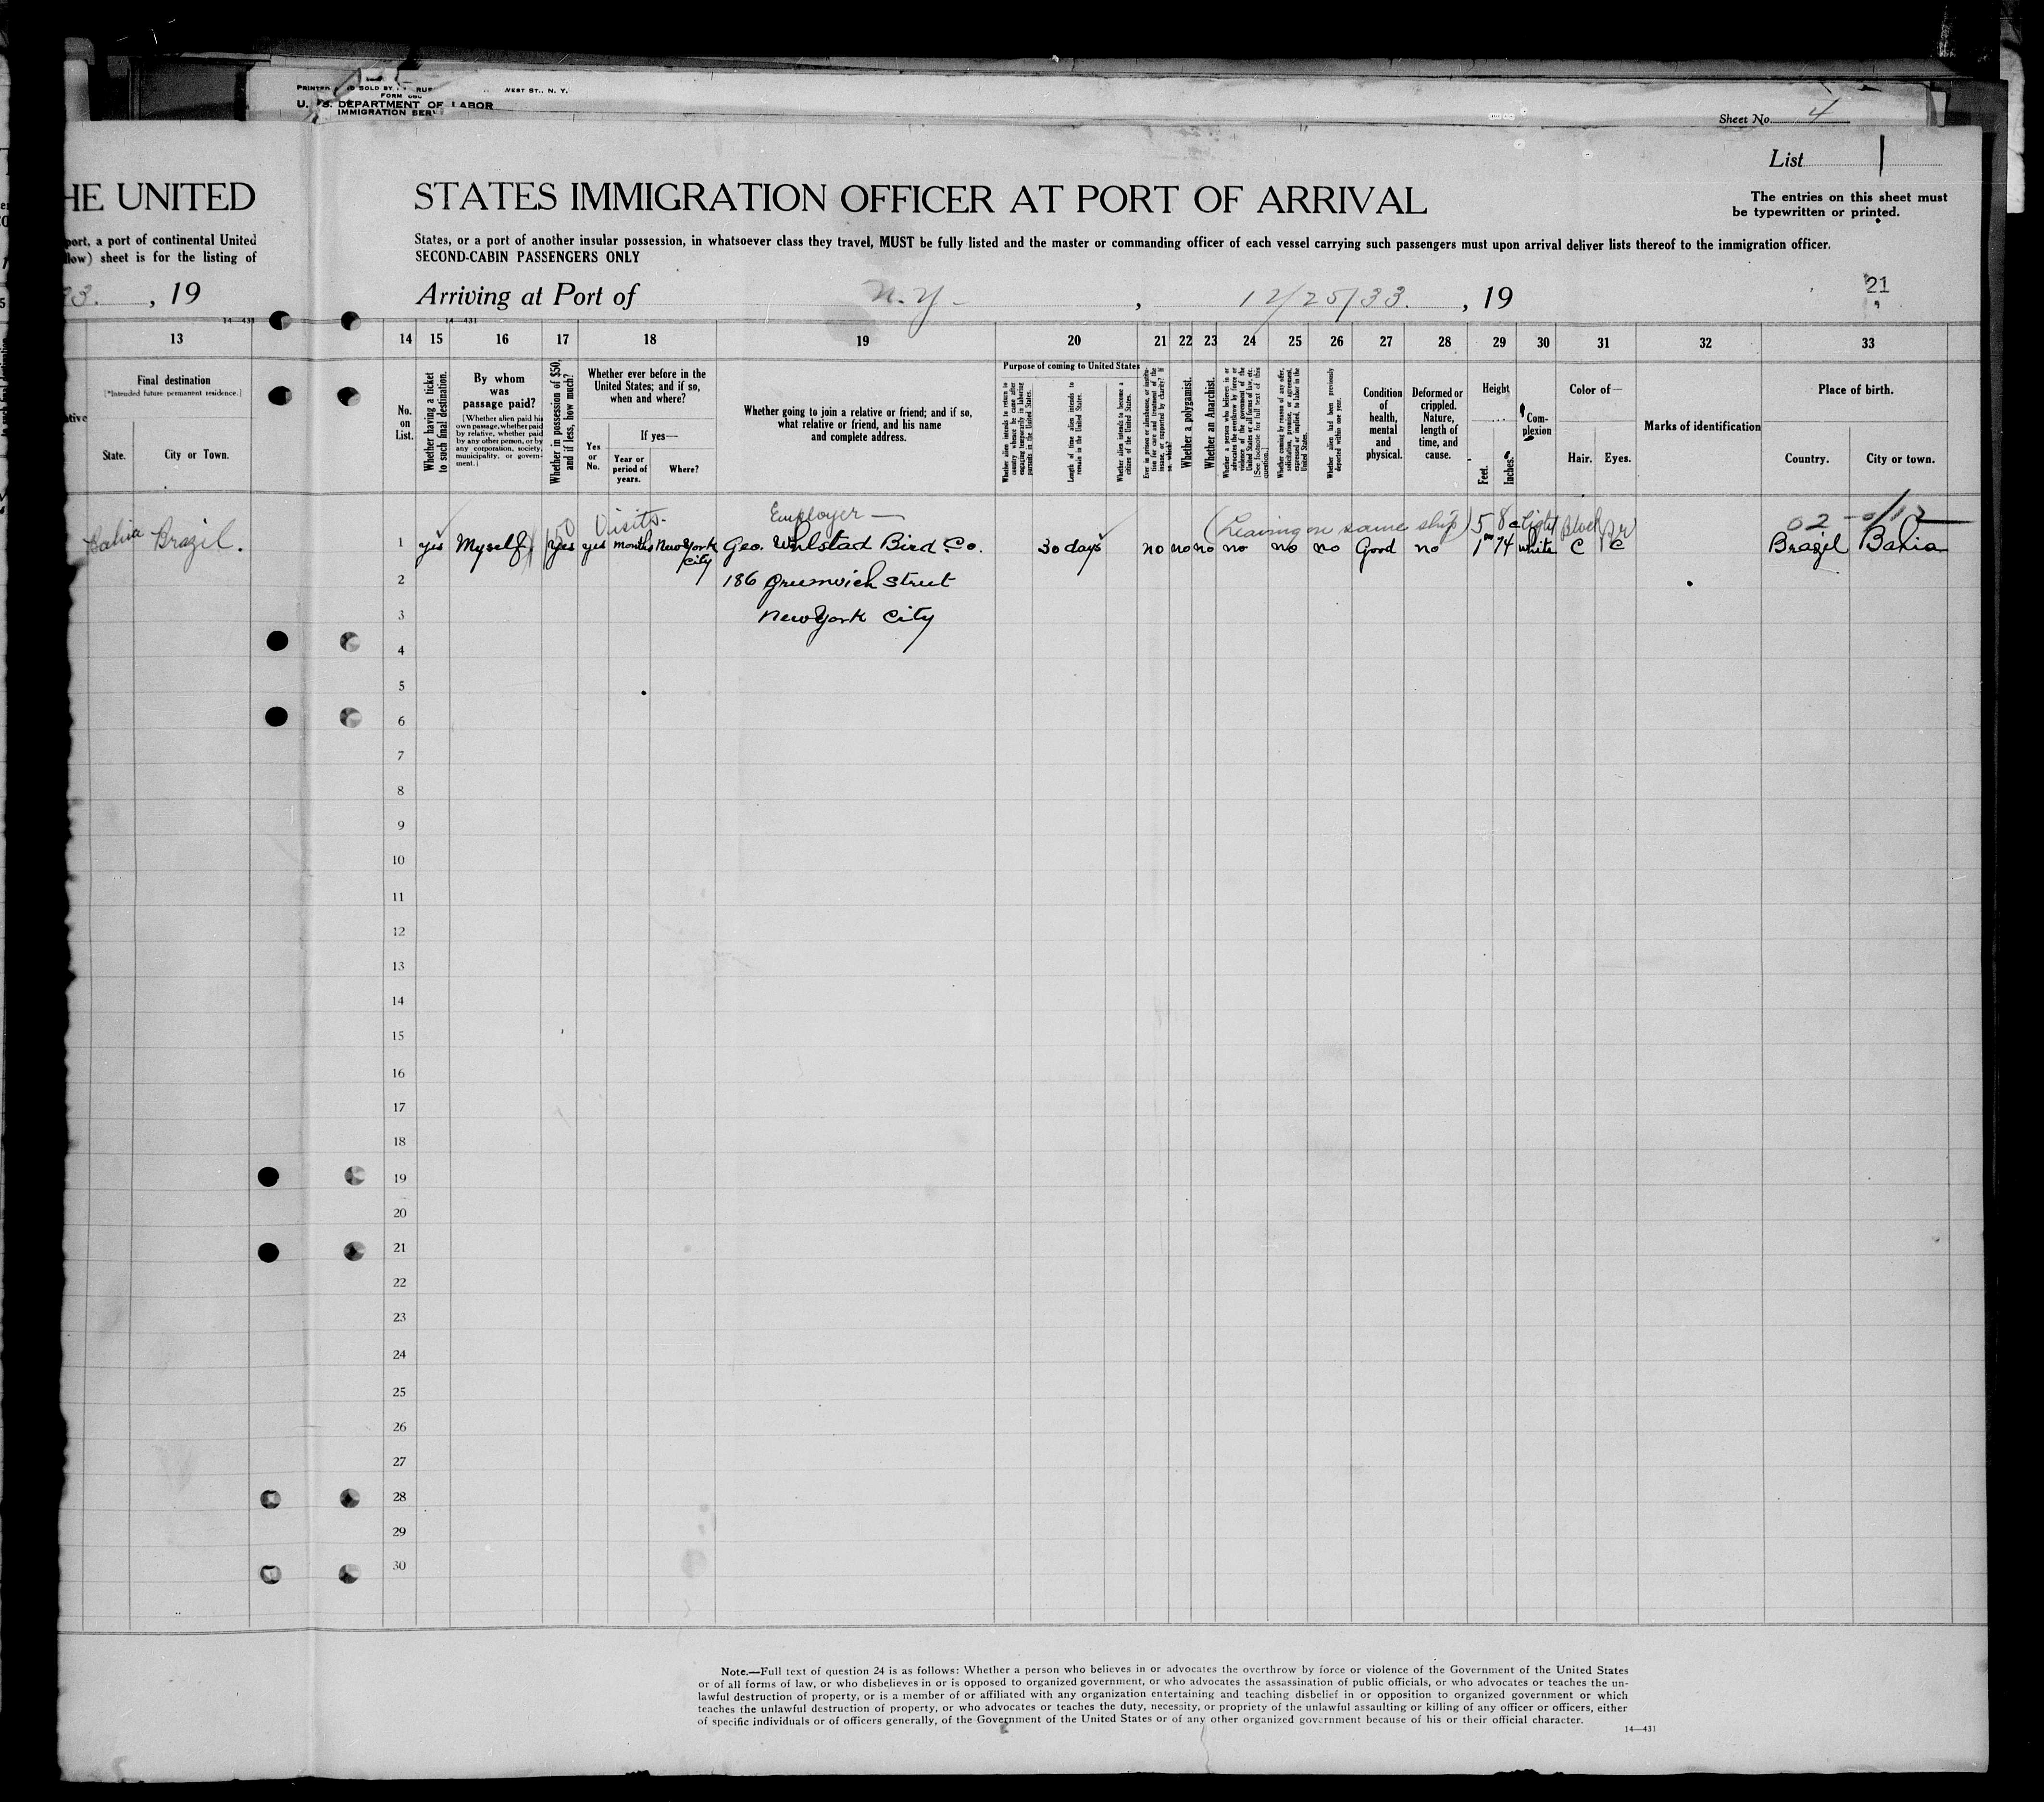 PRINTED
SOLD BY
WEST ST., N. Y.
FORM
U. S. DEPARTMENT OF LABOR
IMMIGRATION SERV
Sheet No. 4
List 1
HE UNITED
STATES IMMIGRATION OFFICER AT PORT OF ARRIVAL
The entries on this sheet must
be typewritten or printed.
port, a port of continental United
low) sheet is for the listing of
States, or a port of another insular possession, in whatsoever class they travel, MUST be fully listed and the master or commanding officer of each vessel carrying such passengers must upon arrival deliver lists thereof to the immigration officer.
SECOND-CABIN PASSENGERS ONLY
33. , 19
Arriving at Port of N.Y. , 12/25/33. , 19
21
14—431
14—431
13 14 15 16 17 18 19 20 21 22 23 24 25 26 27 28 29 30 31 32 33
Final destination
[*Intended future permanent residence.]
State.
City or Town.
No.
on
List.
Whether having a ticket
to such final destination.
By whom
was
passage paid?
[Whether alien paid his
own passage, whether paid
by relative, whether paid
by any other person, or by
any corporation, society,
municipality, or govern-
ment.]
Whether in possession of $50,
and if less, how much?
Whether ever before in the
United States; and if so,
when and where?
Yes
or
No.
If yes—
Year or
period of
years.
Where?
Whether going to join a relative or friend; and if so,
what relative or friend, and his name
and complete address.
Purpose of coming to United States
Whether alien intends to return to
country whence he came after
engaging temporarily in laboring
pursuits in the United States.
Length of time alien intends to
remain in the United States.
Whether alien intends to become a
citizen of the United States.
Ever in prison or almshouse, or institu-
tion for care and treatment of the
insane, or supported by charity? If
so, which?
Whether a polygamist.
Whether an Anarchist.
Whether a person who believes in or
advocates the overthrow by force or
violence of the government of the
United States or all forms of law, etc.
[See footnote for full text of this
question.]
Whether coming by reason of any offer,
solicitation, promise, or agreement,
expressed or implied, to labor in the
United States.
Whether alien had been previously
deported within one year.
Condition
of
health,
mental
and
physical.
Deformed or
crippled.
Nature,
length of
time, and
cause.
Height
Feet.
Inches.
Com-
plexion
Color of—
Hair.
Eyes.
Marks of identification
Place of birth.
Country.
City or town.
50 Visits. Employer — (Leaving on same ship) 5 8 Light
Bahia Brazil. 1 yes Myself yes yes months New York City Geo. Bird Co. 30 days no no no no no no Good no 1 74 white C C Brazil Bahia
2 186 Greenwich Street
3 New York City
4
5
6
7
8
9
10
11
12
13
14
15
16
17
18
19
20
21
22
23
24
25
26
27
28
29
30
Note.—Full text of question 24 is as follows: Whether a person who believes in or advocates the overthrow by force or violence of the Government of the United States
or of all forms of law, or who disbelieves in or is opposed to organized government, or who advocates the assassination of public officials, or who advocates or teaches the un-
lawful destruction of property, or is a member of or affiliated with any organization entertaining and teaching disbelief in or opposition to organized government or which
teaches the unlawful destruction of property, or who advocates or teaches the duty, necessity, or propriety of the unlawful assaulting or killing of any officer or officers, either
of specific individuals or of officers generally, of the Government of the United States or of any other organized government because of his or their official character.
14—431